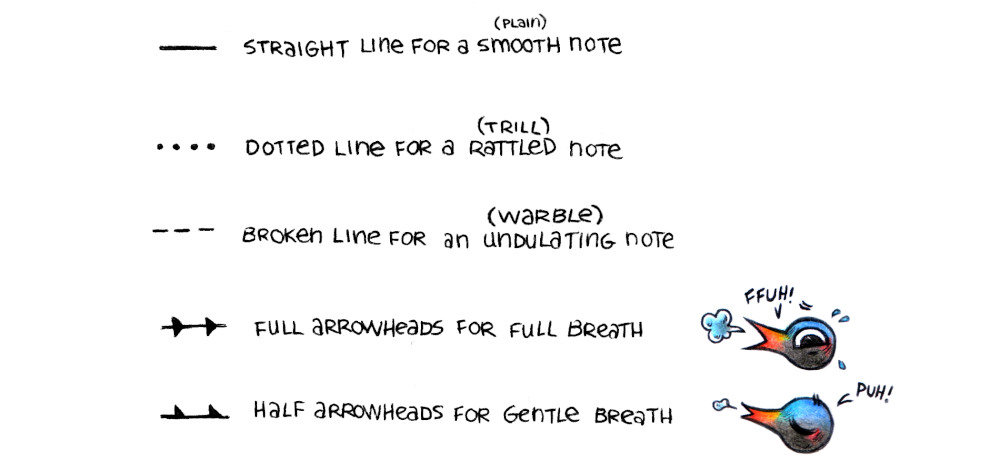 (PLain)
STRaIGHT Line FOR a SMOOTH noTe
(TRILL)
DOTTED Line FOR a RaTTLeD noTe
(WaRBLe)
BROKen Line FOR an unDULaTinG noTe
FULL aRROWHeaDS FOR FULL BReaTH
FFUH!
HaLF aRROWHeaDS FOR GenTLe BReaTH
PUH!